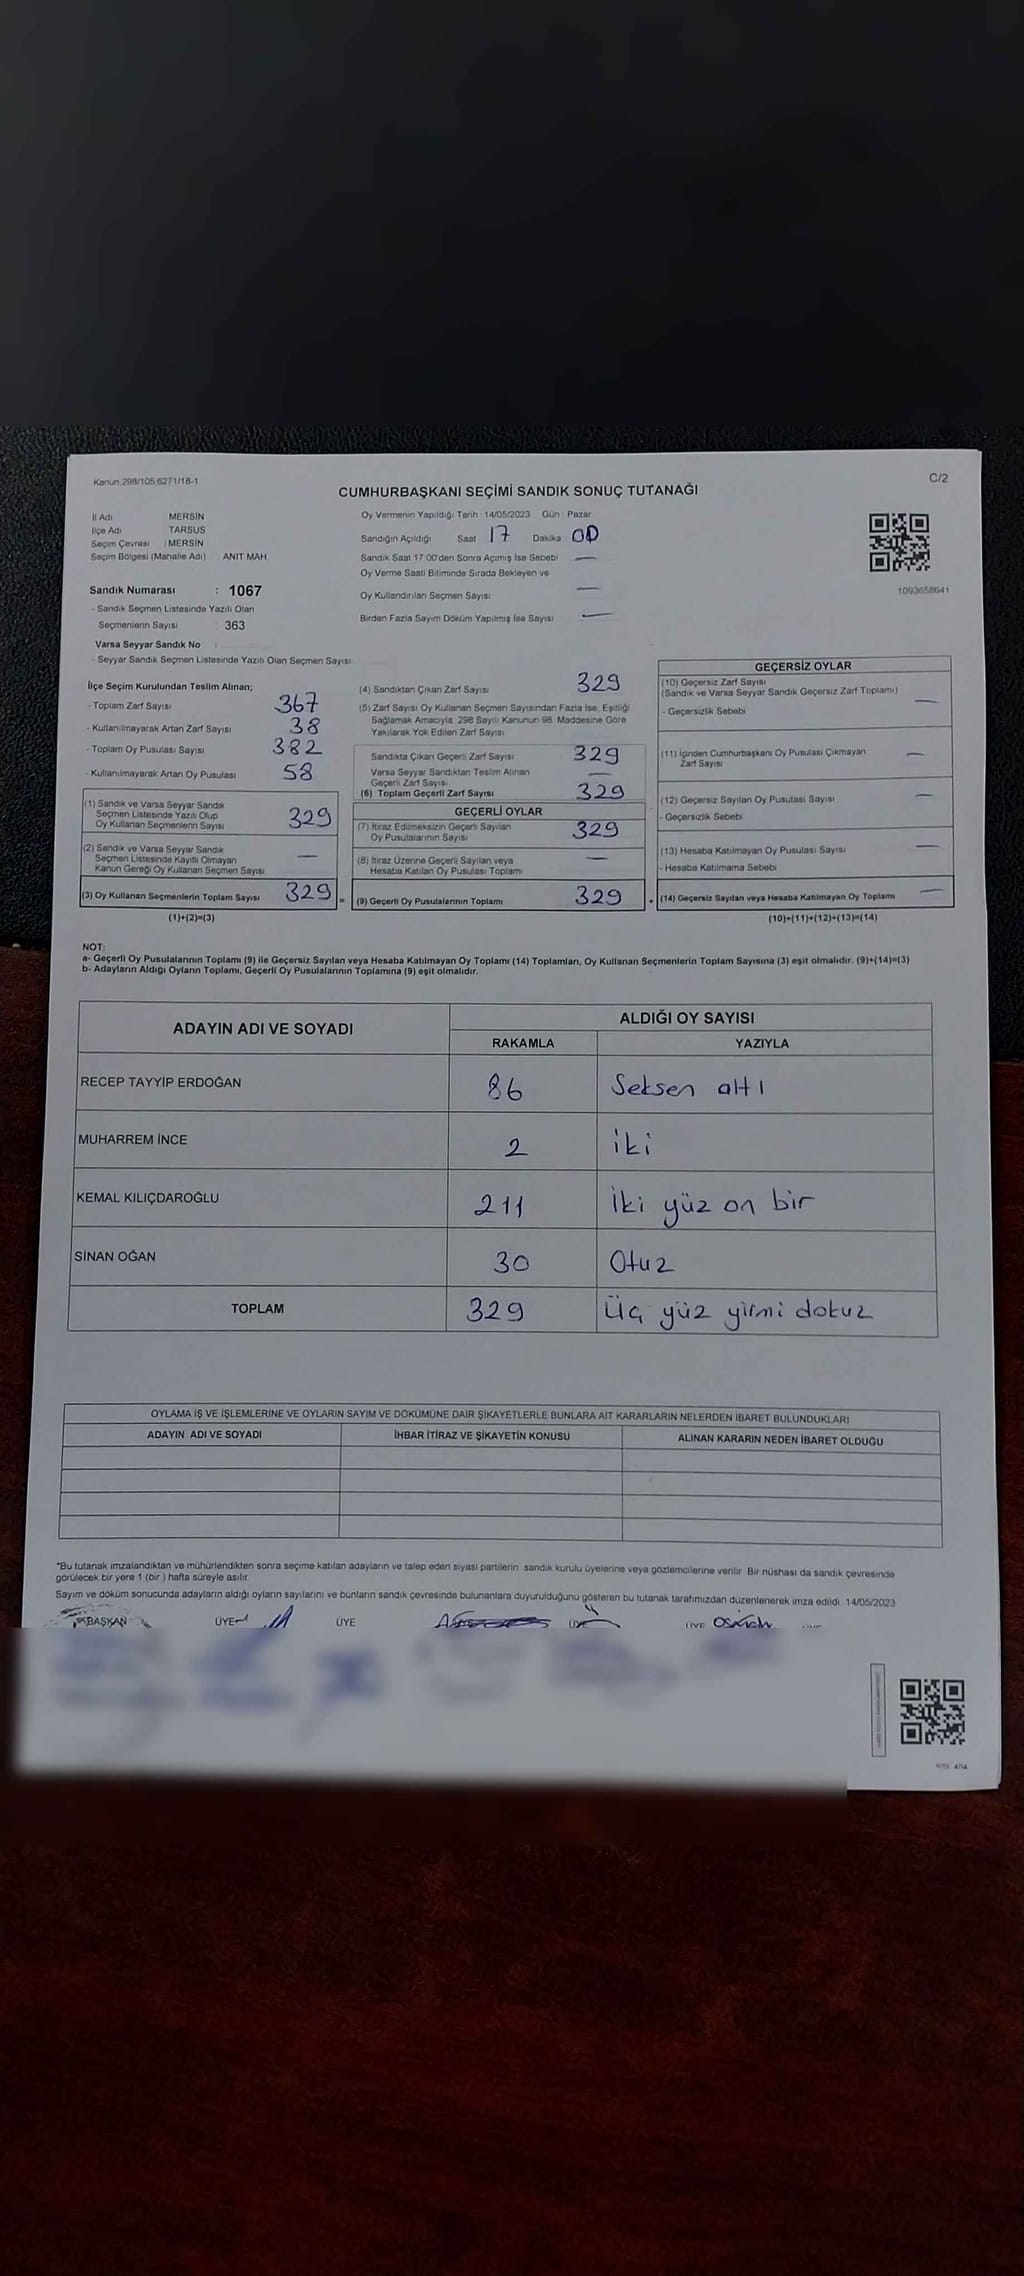 Kanun 298/105,6271/18-1
C/2
CUMHURBAŞKANI SEÇİMİ SANDIK SONUÇ TUTANAĞI
İl Adı MERSİN
İlçe Adı TARSUS
Seçim Çevresi : MERSİN
Seçim Bölgesi (Mahalle Adı) ANIT MAH
Sandık Numarası : 1067
- Sandık Seçmen Listesinde Yazılı Olan
Seçmenlerin Sayısı 363
Varsa Seyyar Sandık No
- Seyyar Sandık Seçmen Listesinde Yazılı Olan Seçmen Sayısı
Oy Vermenin Yapıldığı Tarih 14/05/2023 Gün Pazar
Sandığın Açıldığı Saat 17 Dakika 00
Sandık Saat 17:00'den Sonra Açılmış İse Sebebi —
Oy Verme Saati Bitiminde Sırada Bekleyen ve
Oy Kullandırılan Seçmen Sayısı —
Birden Fazla Sayım Döküm Yapılmış İse Sayısı —
1093658641
İlçe Seçim Kurulundan Teslim Alınan;
- Toplam Zarf Sayısı 367
- Kullanılmayarak Artan Zarf Sayısı 38
- Toplam Oy Pusulası Sayısı 382
- Kullanılmayarak Artan Oy Pusulası 58
(1) Sandık ve Varsa Seyyar Sandık
Seçmen Listesinde Yazılı Olup
Oy Kullanan Seçmenlerin Sayısı 329
(2) Sandık ve Varsa Seyyar Sandık
Seçmen Listesinde Kayıtlı Olmayan
Kanun Gereği Oy Kullanan Seçmen Sayısı —
(3) Oy Kullanan Seçmenlerin Toplam Sayısı 329 =
(1)+(2)=(3)
(4) Sandıktan Çıkan Zarf Sayısı 329
(5) Zarf Sayısı Oy Kullanan Seçmen Sayısından Fazla İse, Eşitliği
Sağlamak Amacıyla, 298 Sayılı Kanunun 98. Maddesine Göre
Yakılarak Yok Edilen Zarf Sayısı
Sandıkta Çıkan Geçerli Zarf Sayısı 329
Varsa Seyyar Sandıktan Teslim Alınan
Geçerli Zarf Sayısı —
(6) Toplam Geçerli Zarf Sayısı 329
GEÇERLİ OYLAR
(7) İtiraz Edilmeksizin Geçerli Sayılan
Oy Pusulalarının Sayısı 329
(8) İtiraz Üzerine Geçerli Sayılan veya
Hesaba Katılan Oy Pusulası Toplamı —
(9) Geçerli Oy Pusulalarının Toplamı 329 +
GEÇERSİZ OYLAR
(10) Geçersiz Zarf Sayısı
(Sandık ve Varsa Seyyar Sandık Geçersiz Zarf Toplamı) —
- Geçersizlik Sebebi
(11) İçinden Cumhurbaşkanı Oy Pusulası Çıkmayan
Zarf Sayısı —
(12) Geçersiz Sayılan Oy Pusulası Sayısı —
- Geçersizlik Sebebi
(13) Hesaba Katılmayan Oy Pusulası Sayısı —
- Hesaba Katılmama Sebebi
(14) Geçersiz Sayılan veya Hesaba Katılmayan Oy Toplamı —
(10)+(11)+(12)+(13)=(14)
NOT:
a- Geçerli Oy Pusulalarının Toplamı (9) ile Geçersiz Sayılan veya Hesaba Katılmayan Oy Toplamı (14) Toplamları, Oy Kullanan Seçmenlerin Toplam Sayısına (3) eşit olmalıdır. (9)+(14)=(3)
b- Adayların Aldığı Oyların Toplamı, Geçerli Oy Pusulalarının Toplamına (9) eşit olmalıdır.
ADAYIN ADI VE SOYADI ALDIĞI OY SAYISI
RAKAMLA YAZIYLA
RECEP TAYYİP ERDOĞAN 86 Seksen altı
MUHARREM İNCE 2 iki
KEMAL KILIÇDAROĞLU 211 İki yüz on bir
SİNAN OĞAN 30 Otuz
TOPLAM 329 Üç yüz yirmi dokuz
OYLAMA İŞ VE İŞLEMLERİNE VE OYLARIN SAYIM VE DÖKÜMÜNE DAİR ŞİKAYETLERLE BUNLARA AİT KARARLARIN NELERDEN İBARET BULUNDUKLARI
ADAYIN ADI VE SOYADI İHBAR İTİRAZ VE ŞİKAYETİN KONUSU ALINAN KARARIN NEDEN İBARET OLDUĞU
*Bu tutanak imzalandıktan ve mühürlendikten sonra seçime katılan adayların ve talep eden siyasi partilerin sandık kurulu üyelerine veya gözlemcilerine verilir. Bir nüshası da sandık çevresinde
görülecek bir yere 1 (bir ) hafta süreyle asılır.
Sayım ve döküm sonucunda adayların aldığı oyların sayılarını ve bunların sandık çevresinde bulunanlara duyurulduğunu gösteren bu tutanak tarafımızdan düzenlenerek imza edildi. 14/05/2023
BAŞKAN ÜYE ÜYE ÜYE ÜYE